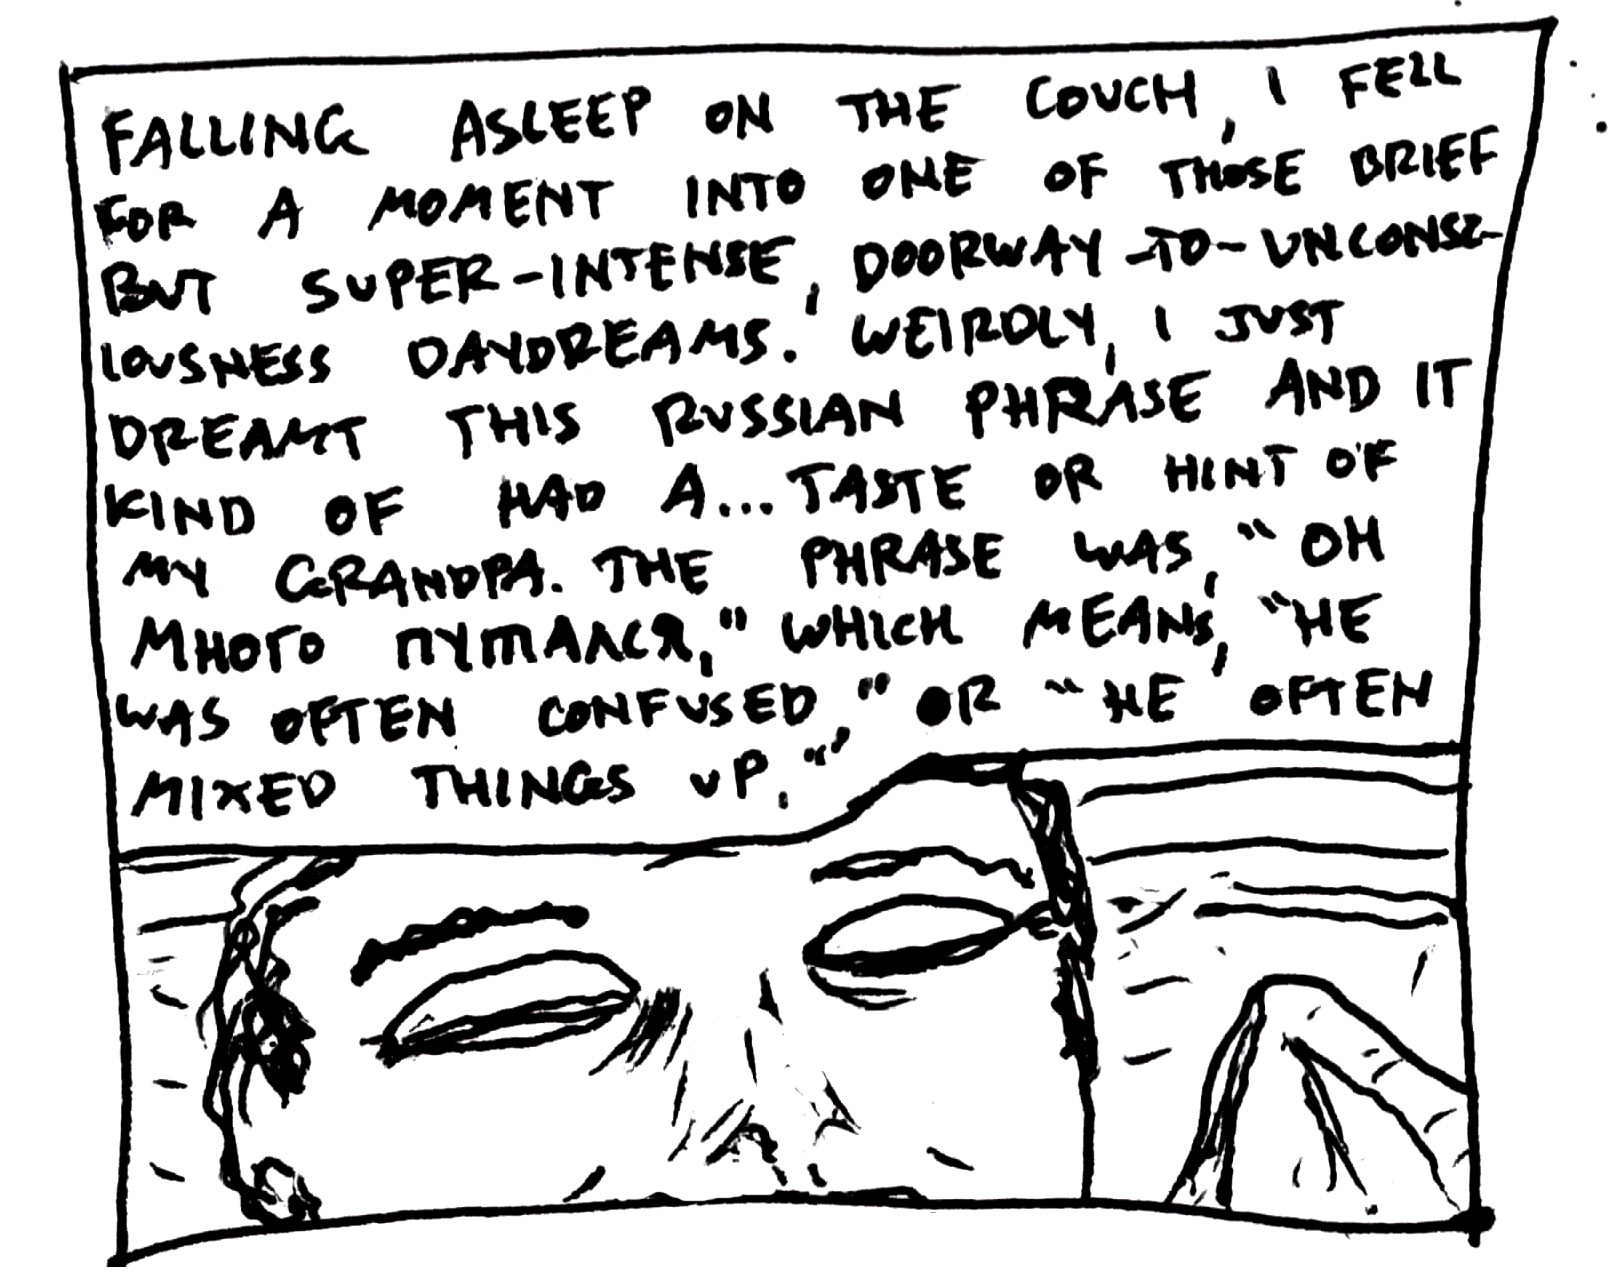 FALLING ASLEEP ON THE COUCH, I FELL
FOR A MOMENT INTO ONE OF THOSE BRIEF
BUT SUPER-INTENSE, DOORWAY-TO-UNCONSC-
IOUSNESS DAYDREAMS. WEIRDLY, I JUST
DREAMT THIS RUSSIAN PHRASE AND IT
KIND OF HAD A... TASTE OR HINT OF
MY GRANDPA. THE PHRASE WAS, "ОН
МНОГО ПУТАЛСЯ," WHICH MEANS, "HE
WAS OFTEN CONFUSED," OR "HE OFTEN
MIXED THINGS UP.""